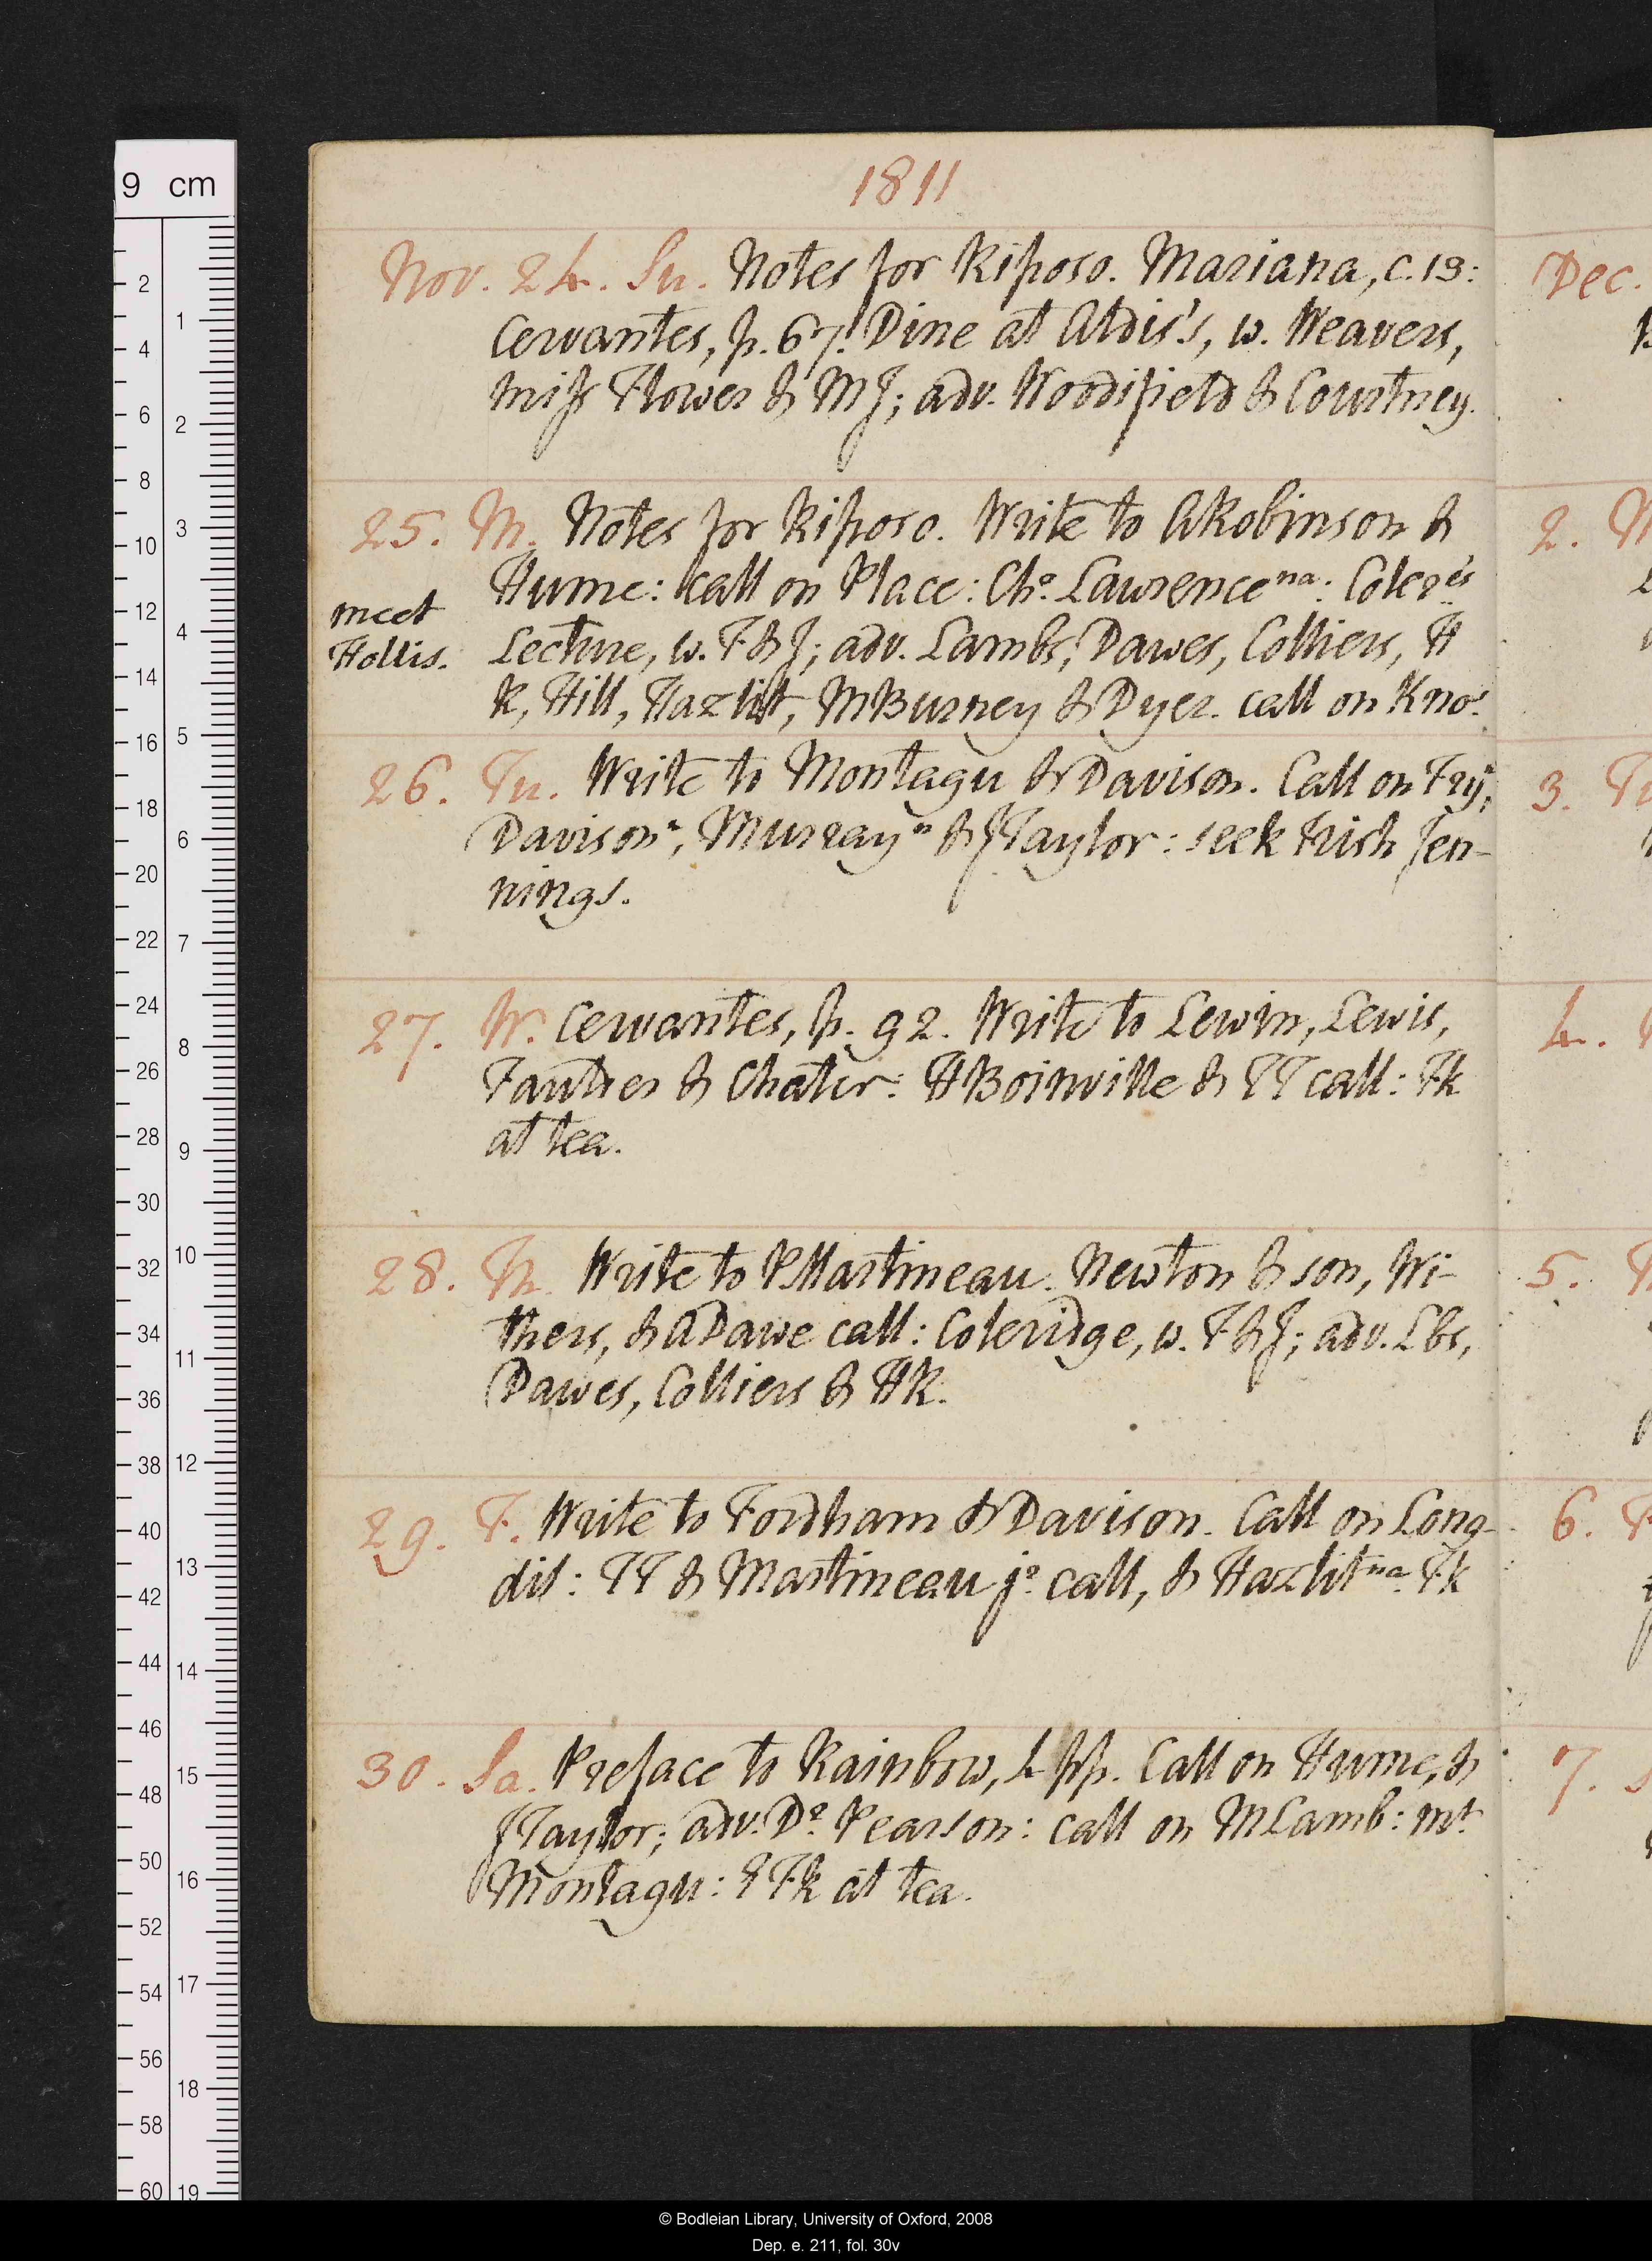 1811
Nov. 24. Su. Notes for Riposo. Mariana, c. 13:
Cervantes, p. 67. Dine at Aldis's, w. Weavers,
miss Flower & MJ; adv. Woodifield & Courtney.
25. M. Notes for Riposo. Write to ARobinson &
Hume: call on Place: Cho Lawrence na: Coler's
meet
Hollis.
Lecture, w. F & J; adv. Lambs, Dawes, Colliers, H
R, Hill, Hazlit, MBurney & Dyer. call on Kno.
26. Tu. Write to Montagu & Davison. Call on Fry,
Davison n, Murray n & JTaylor: seek Irish Jen-
nings.
27. W. Cervantes, p. 92. Write to Lewin, Lewis,
Fauntleroy & Chater: HBoinville & TT call: Fk
at tea.
28. Th. Write to PMartineau. Newton & son, Wi-
thers, & ADawe call: Coleridge, w. F & J; adv. Lbs,
Dawes, Colliers & HR.
29. F. Write to Fordham & Davison. Call on Long-
dil: TT & Martineau jo call, & Hazlit na. Fk
30. Sa. Preface to Rainbow, 4 pp. Call on Hume, &
JTaylor; adv. Do Pearson: call on MLamb: mt
Montagu: Fk at tea.
Dec.
2.
3.
4.
5.
6.
7.
9 cm
2
4
6
8
10
12
14
16
18
20
22
24
26
28
30
32
34
36
38
40
42
44
46
48
50
52
54
56
58
60
1
2
3
4
5
6
7
8
9
10
11
12
13
14
15
16
17
18
19
© Bodleian Library, University of Oxford, 2008
Dep. e. 211, fol. 30v